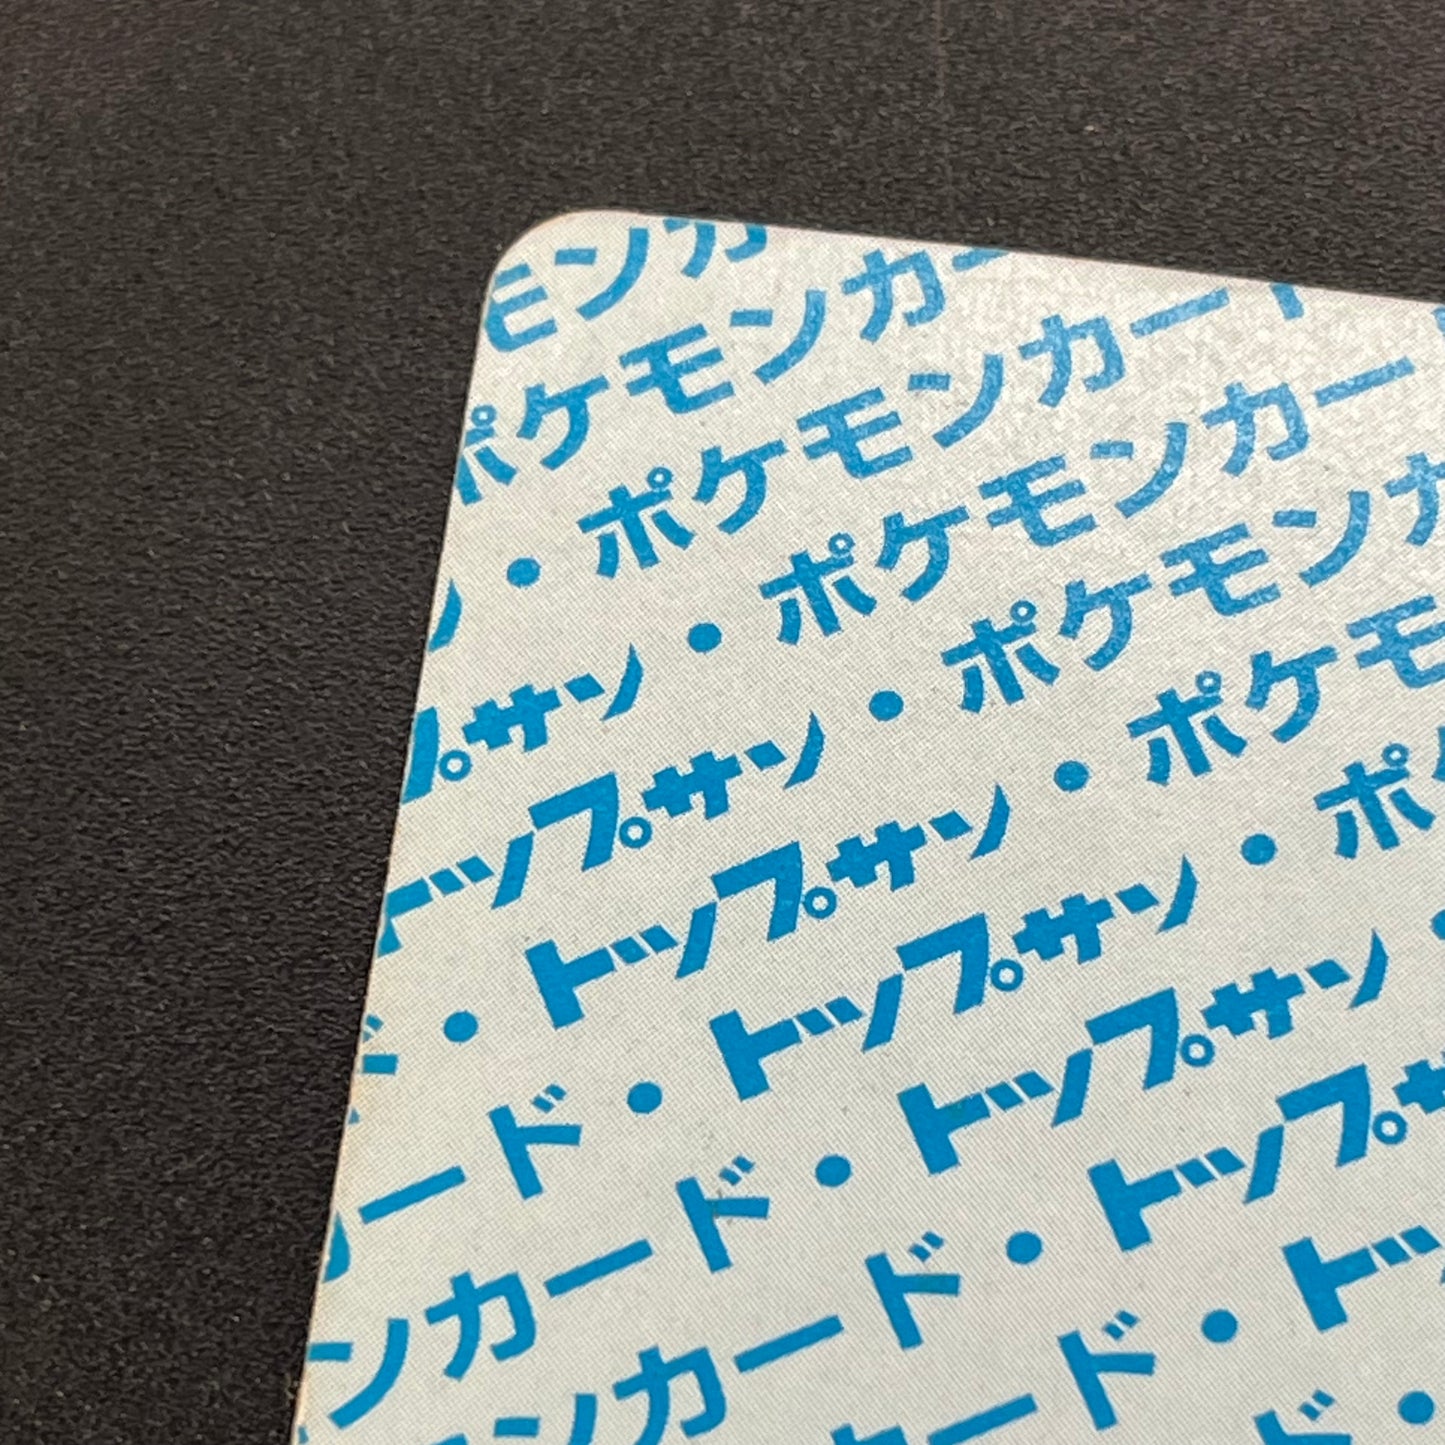 モンカ
ポケモンカー
ン・ポケモンカード
プサン・ポケモンカー
トップサン・ポケモンカ
ド・トップサン・ポケモ
カード・トップサン・ポケ
ンカード・トップサン・
モンカード・トップサ
カード・トッ
ド・